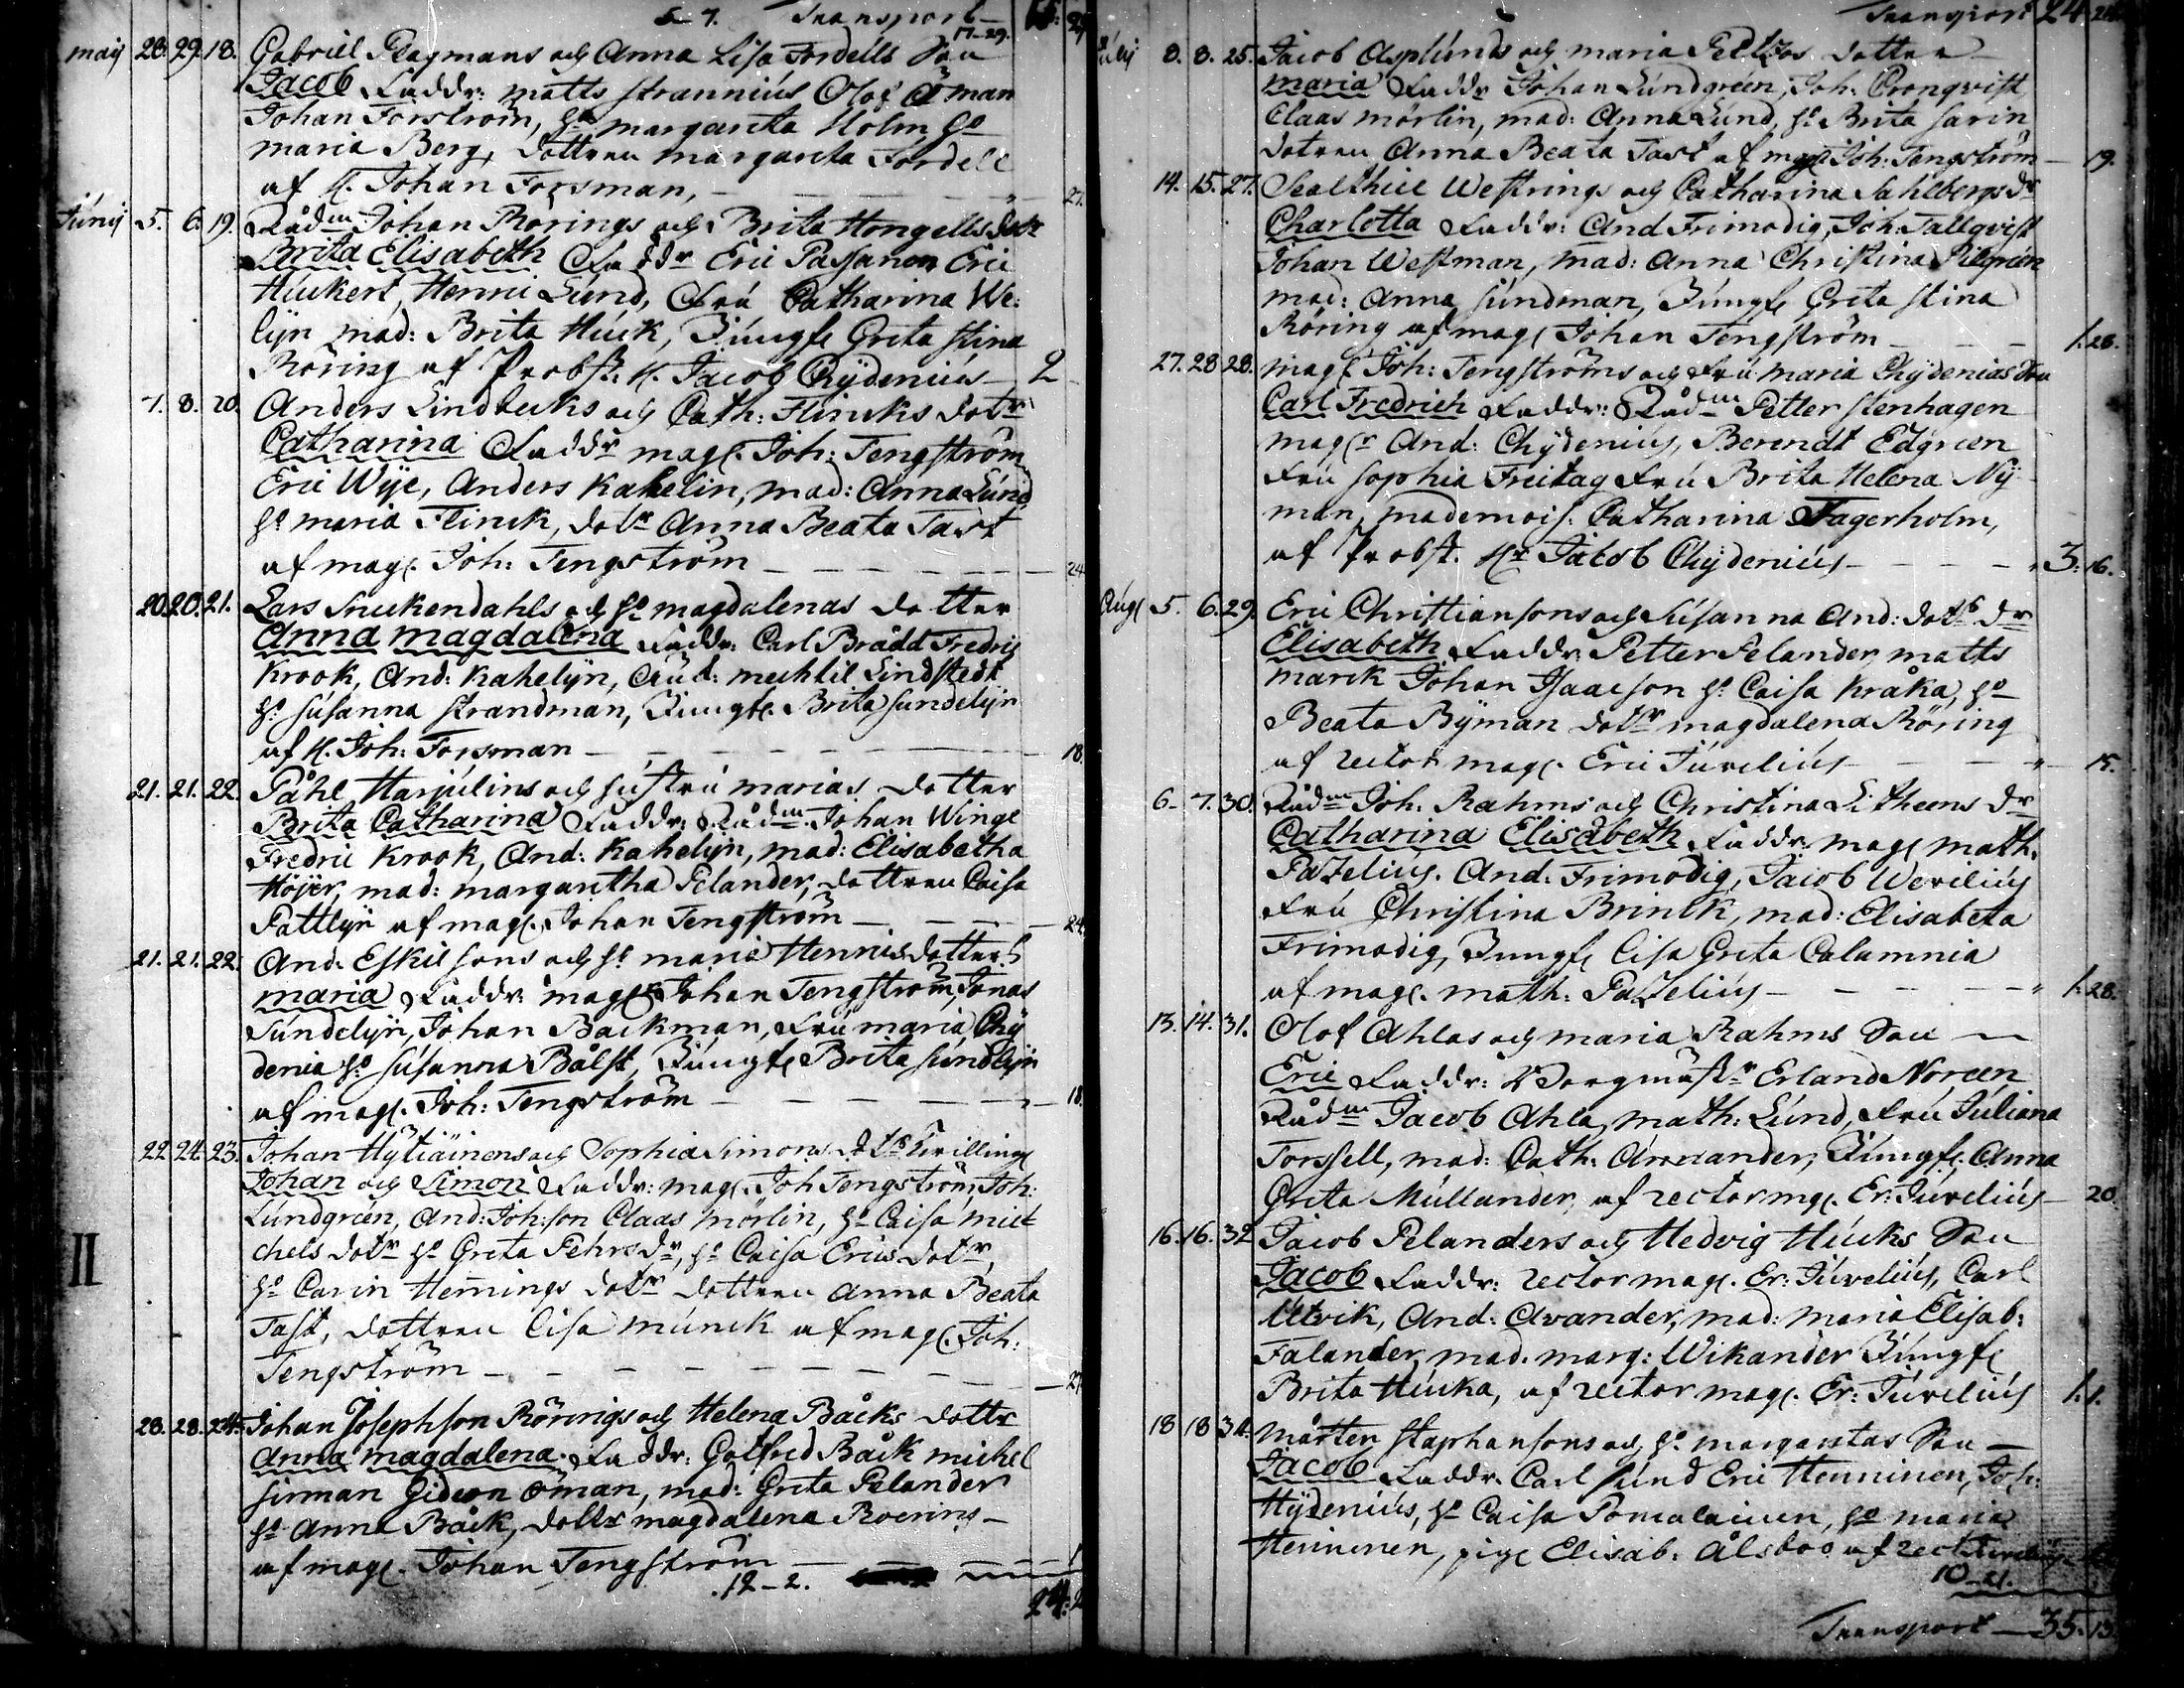 5-7. Transport
17-29.
maij 28. 29. 18. Gabriel Plagmans och Anna Lisa Fordells Son
Jacob Faddr: matts strannius Olof Öman
Johan Forström, hu margareta Holm, hu
maria Berg, dottren margareta Fordell
af H. Johan Forsman, 27.
Junij 5. 6. 19. Rådm Johan Rörings och Brita Hongells dott
Brita Elisabeth Faddr Eric Passanen Eric
Huckert, Henric Lund, Fru Catharina We-
lijn mad: Brita Huck, Jungfr Greta stina
Röring af Probst. H. Jacob Chydenius 2
7. 8. 20. Anders Lindbecks och Cath: Flincks dotr
Catharina Faddr mag. Joh: Tengström
Eric Wije, Anders Kahelin, mad: Anna Lund
hu maria Flinck, dotr Anna Beata Tast
af mag. Joh: Tengström 24
20. 20. 21. Lars Snickendahls och hu magdalenas dotter
Anna magdalena Faddr: Carl Brådd Fredric
Krook, And: Kahelijn, mechtil Lindstedt
hu susanna strandman, Jungfr. Brita sundelijn
af H. Joh: Forsman 18.
21. 21. 22. Påhl Harjulins och hustru marias dotter
Brita Catharina Faddr: Rådm. Johan Winge
Fredric Krook, And: Kahelijn, mad: Elisabetha
Höijer, mad: margaretha Pelander, dottren Caisa
Pattlijn af mag. Johan Tengström 24.
21. 21. 22. And: Eskilsons och hu maria Hennisdotters
maria Faddr: mag Johan Tengström, Jonas
Sundelijn, Johan Backman, Fru maria Chy
denia hu susanna Bålst, Jungfr Brita sundelijn
af mag. Joh: Tengström 18.
22. 24. 23. Johan Hytiäinens och Sophia Simons dotrs Tvillingr
Johan och Simon Faddr: mag. Joh Tengström, Joh:
Lundgreen, And: Joh:son Claas mörlin, hu Caisa mic
chels dotr hu Greta Pehrs dr, hu Caisa Erics dotr,
hu Carin Hemings dotr dottren Anna Beata
Tast, dottren Lisa munck af mag. Joh:
Tengström 27.
II
28. 28. 24. Johan Josephson Rörings och Helena Bäcks dottr
Anna magdalena. Faddr: Gotfred Bäck michel
sirman Gideon Öman, mad: Greta Pelander
hu Anna Bäck, dottr magdalena Roering
af mag. Johan Tengström 1
12-2.
24:2
Transport 24
Julij 8. 8. 25. Jacob Asplunds och maria dotter
maria Faddr Johan Lundgreen, Joh: Cronqvist
Claas mörlin, mad: Anna Lund, hu Brita sarin
dotren Anna Beata Tast af mag Joh: Tengström 19.
14. 15. 27. Sealthiel Westrings och Catharina Sahlbergs dr
Charlotta Faddr: And Frimodig, Joh: Tallqvist
Johan Westman, mad: Anna Christina Pilgreen
mad: Anna sundman, Jungfr Greta stina
Röring af mag Johan Tengström 1. 28.
27. 28 28. mag Joh: Tengströms och Fru maria Chydenias Son
Carl Fredrich Faddr: Rådm Petter stenhagen
magr And: Chydenius, Berendt Edgreen
Fru sophia Freitag Fru Brita Helena Ny-
man, mademois. Catharina Fagerholm,
af Probst. Hr Jacob Chydenius 3: 16.
Aug 5. 6. 29. Eric Christiansons och Susanna And: dots dr
Elisabeth Faddr: Petter Pelander matts
marck Johan Isaacson hu Caisa Kråka, hu
Beata Byman dotr magdalena Röring
af rector mag. Eric Juvelius 15.
6. 7. 30. Rådm Joh: Rahms och Christina Litheens dr
Catharina Elisabeth Faddr: mag math.
Pazelius. And: Frimodig, Jacob Werelius
Fru Christina Brinck, mad: Elisabeta
Frimodig, Jungfr Lisa Greta Calamnia
af mag. math: Pazelius 1: 28.
13. 14. 31. Olof Ahlas och maria Rahms Son
Eric Faddr: Borgmästr Erland Noreen
Rådm Jacob Ahla, math: Lund, Fru Juliana
Forssell, mad: Cath: Arwander, Jungfr. Anna
Greta Mullander, af rector mg. Er: Juvelius 20.
16. 16. 32 Jacob Pelanders och Hedvig Hucks Son
Jacob Faddr: rector mag. Er: Juvelius, Carl
Ulvik, And: Avander, mad: maria Elisab:
Falander, mad. marg: Wikander Jungfr
Brita Hucka, af rector mag. Er: Juvelius 1: 1.
18 18 34. mårten staphansons och hu margaretas Son
Jacob Faddr. Carl sund Eric Henninen, Joh:
Hydenius, hu Caisa Pomalainen, hu maria
Henninen, pig Elisab: Ålsboo af rect Juvelius
10-21.
Transport 35: 13